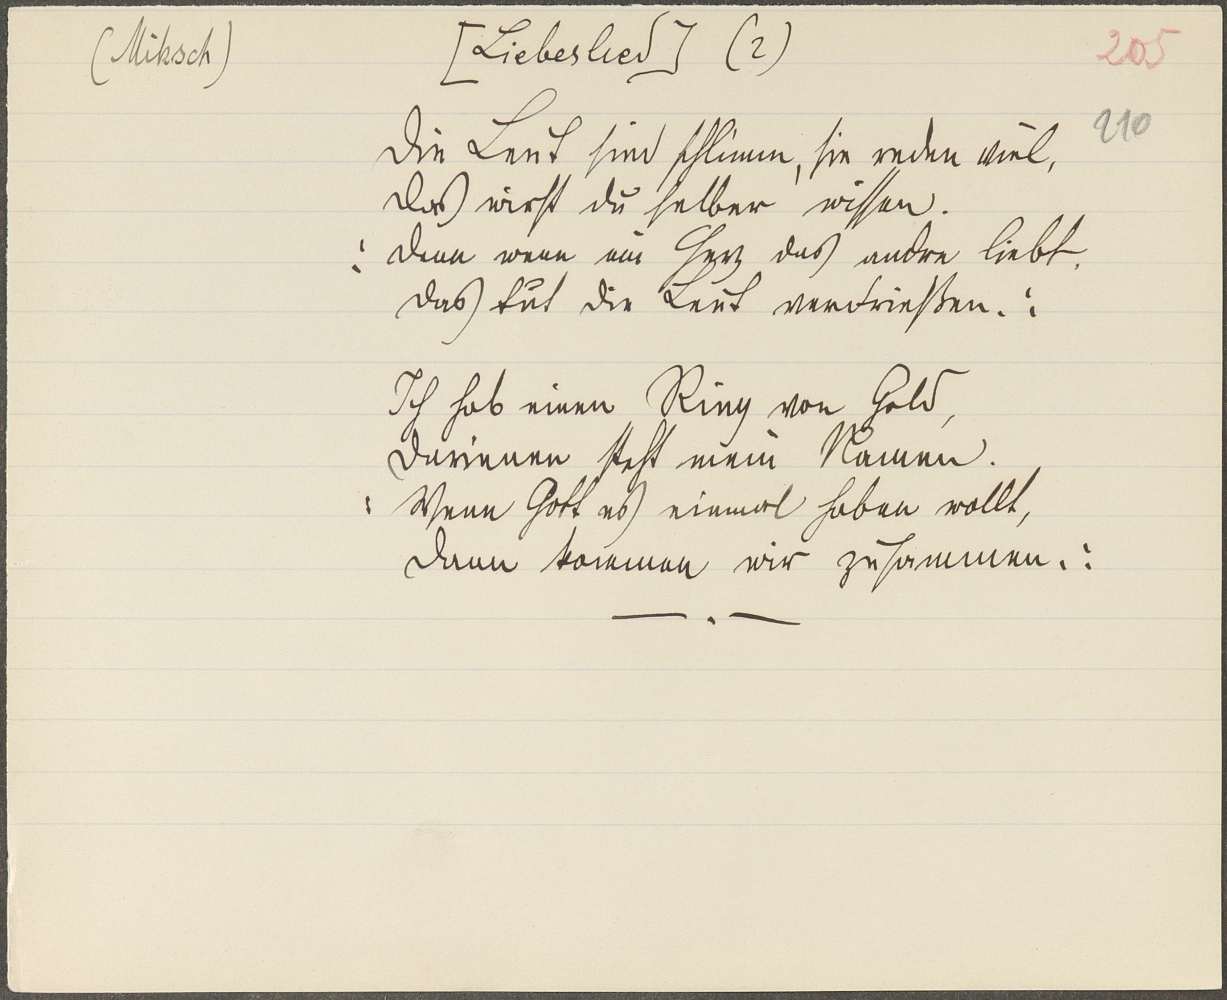 (Miksch) [Liebeslied] (2) 205
210
Die Leut sind schlimm, sie reden viel,
das wirst du selber wissen.
: denn wenn ein Herz das andre liebt,
das tut die Leut verdrießen. :
Ich hab einen Ring von Gold,
darinnen steht mein Namen.
: Wenn Gott es einmal haben wollt,
dann kommen wir zusammen. :